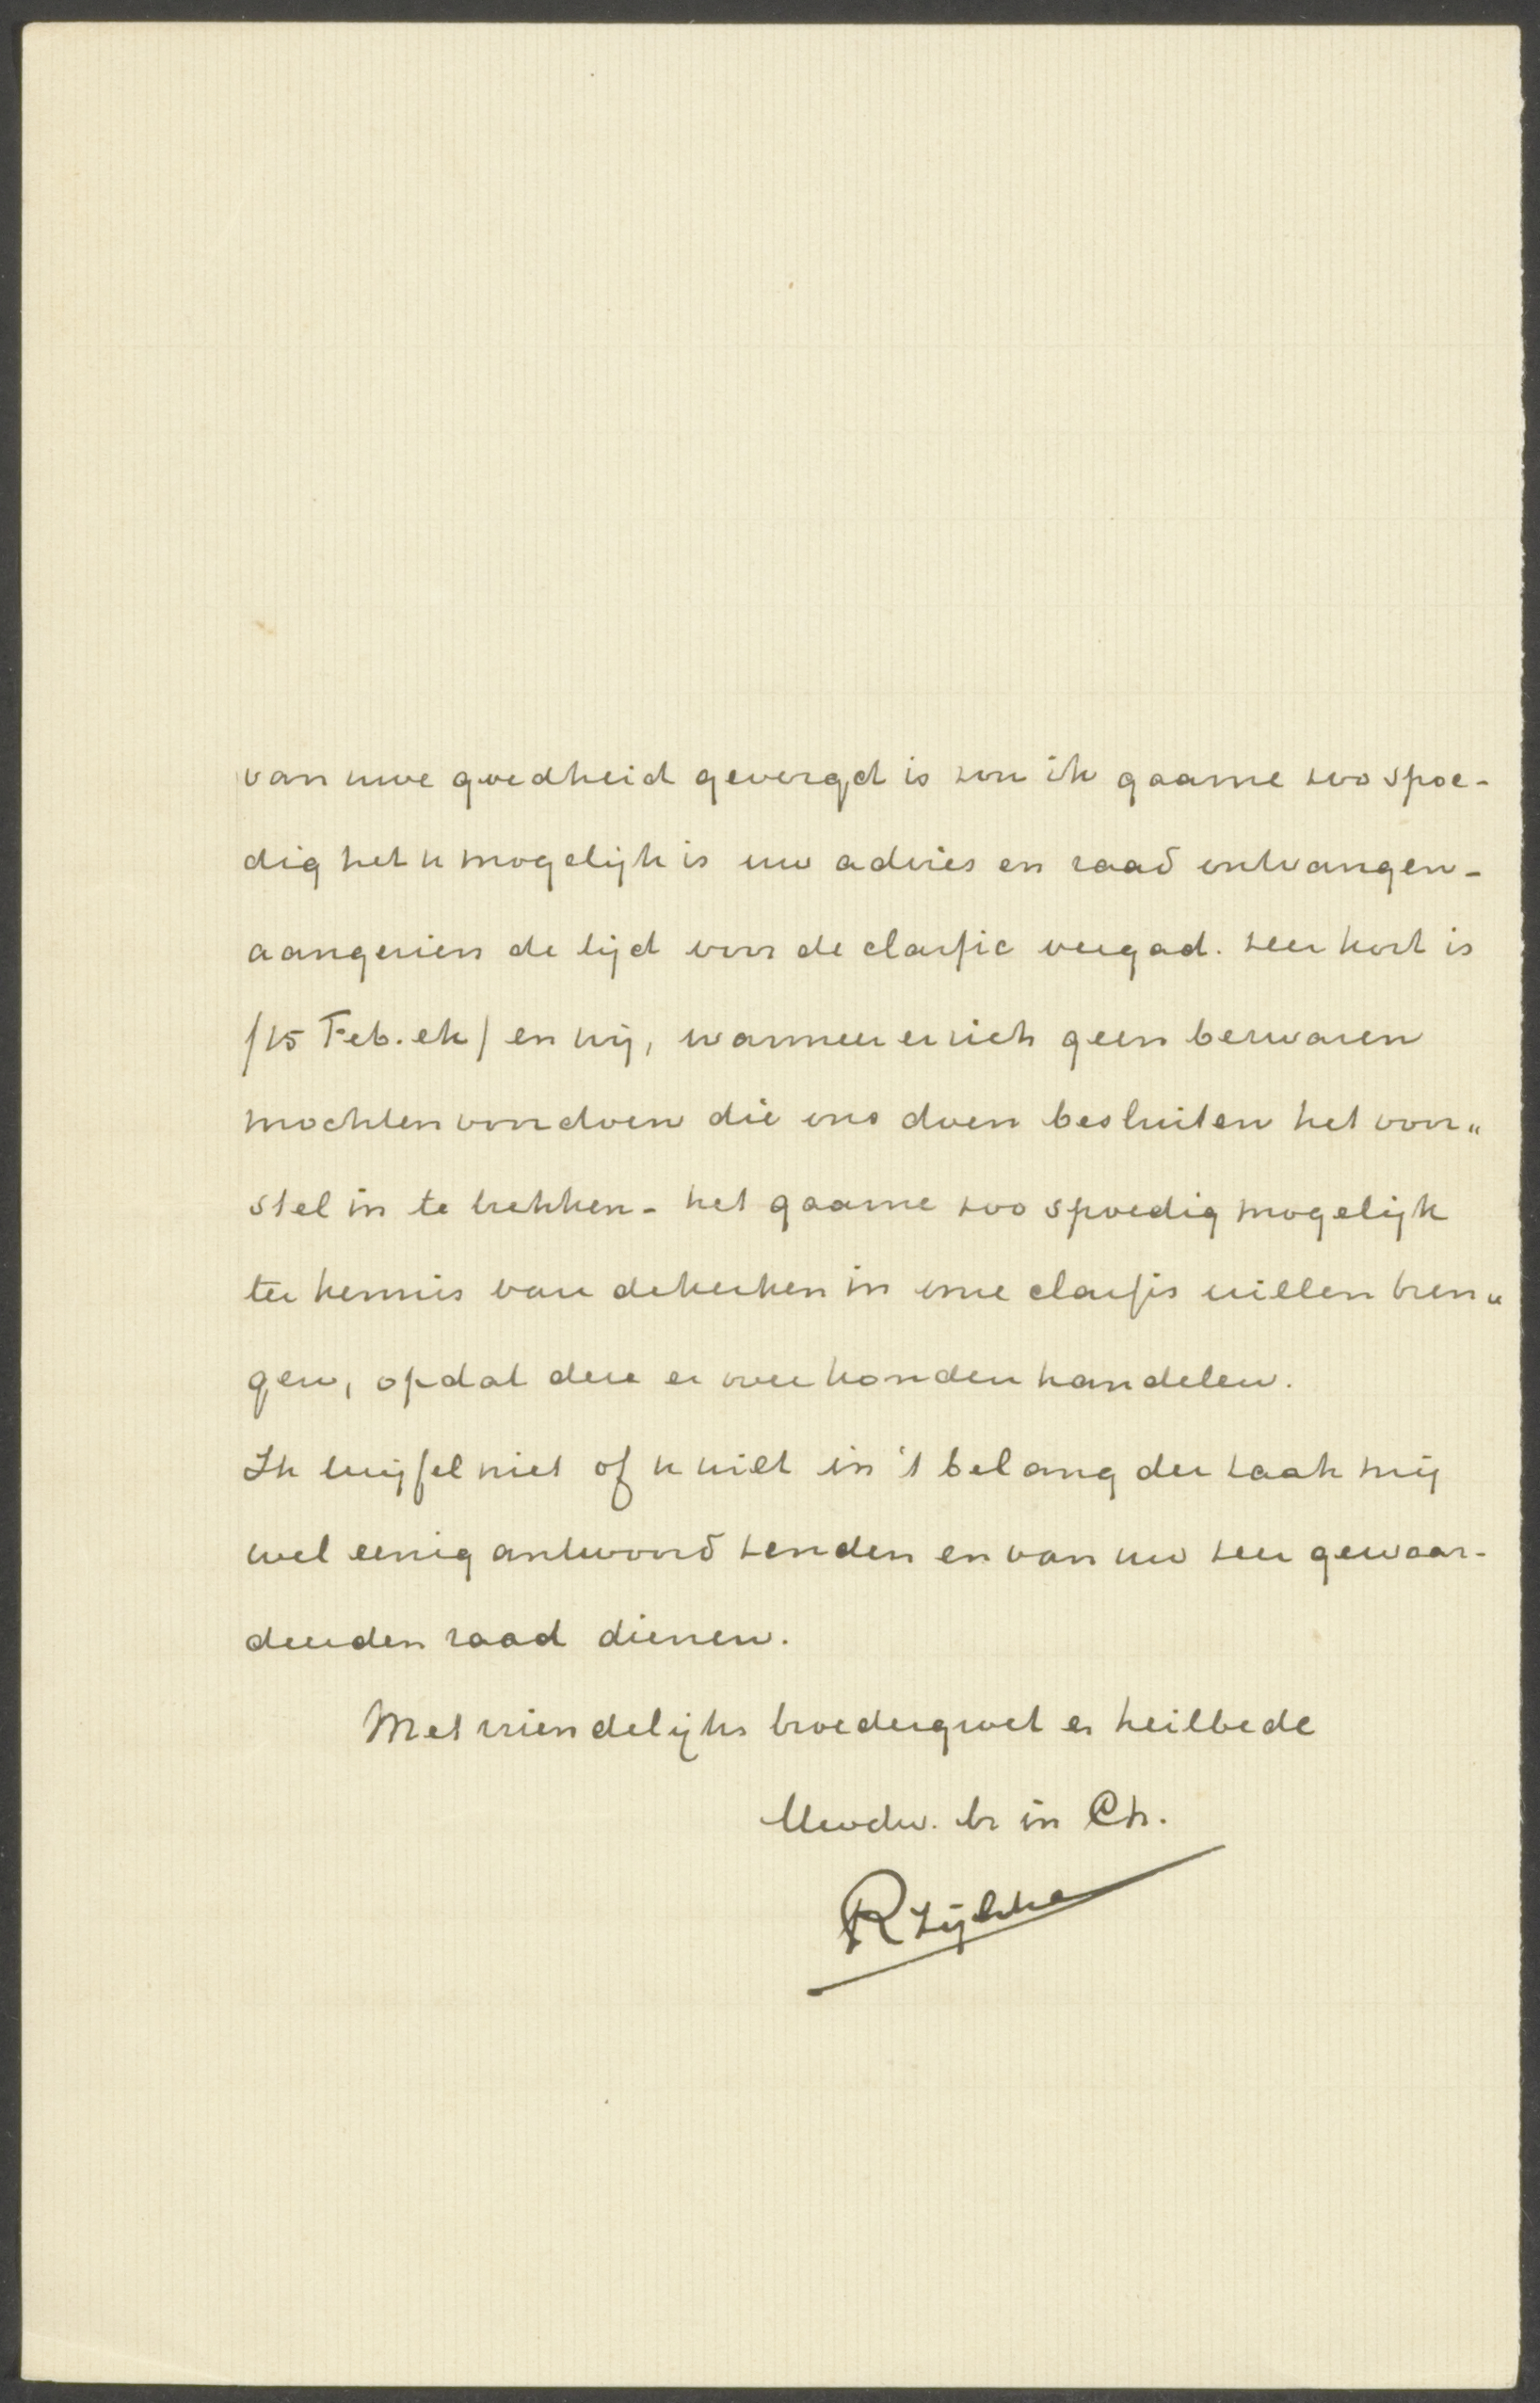 van uwe goedheid gevergd is zou ik gaarne zoo spoe-
dig het u mogelijk is uw advies en raad ontvangen -
aangezien de tijd voor de classic vergad. zeer kort is
(15 Feb. ek) en wij, wanneer er zich geen bezwaren
mochten voordoen die ons doen besluiten het voor„
stel in te trekken - het gaarne zoo spoedig mogelijk
ter kennis van de kerken in onze classis willen bren„
gen, opdat deze er over konden handelen.
Ik twijfel niet of u wilt in 't belang der zaak mij
wel eenig antwoord zenden en van uw zeer gewaar-
deerden raad dienen.
Met vriendelijks broedergroet en heilbede
Uw dw. br in Ch.
R Zijlstra